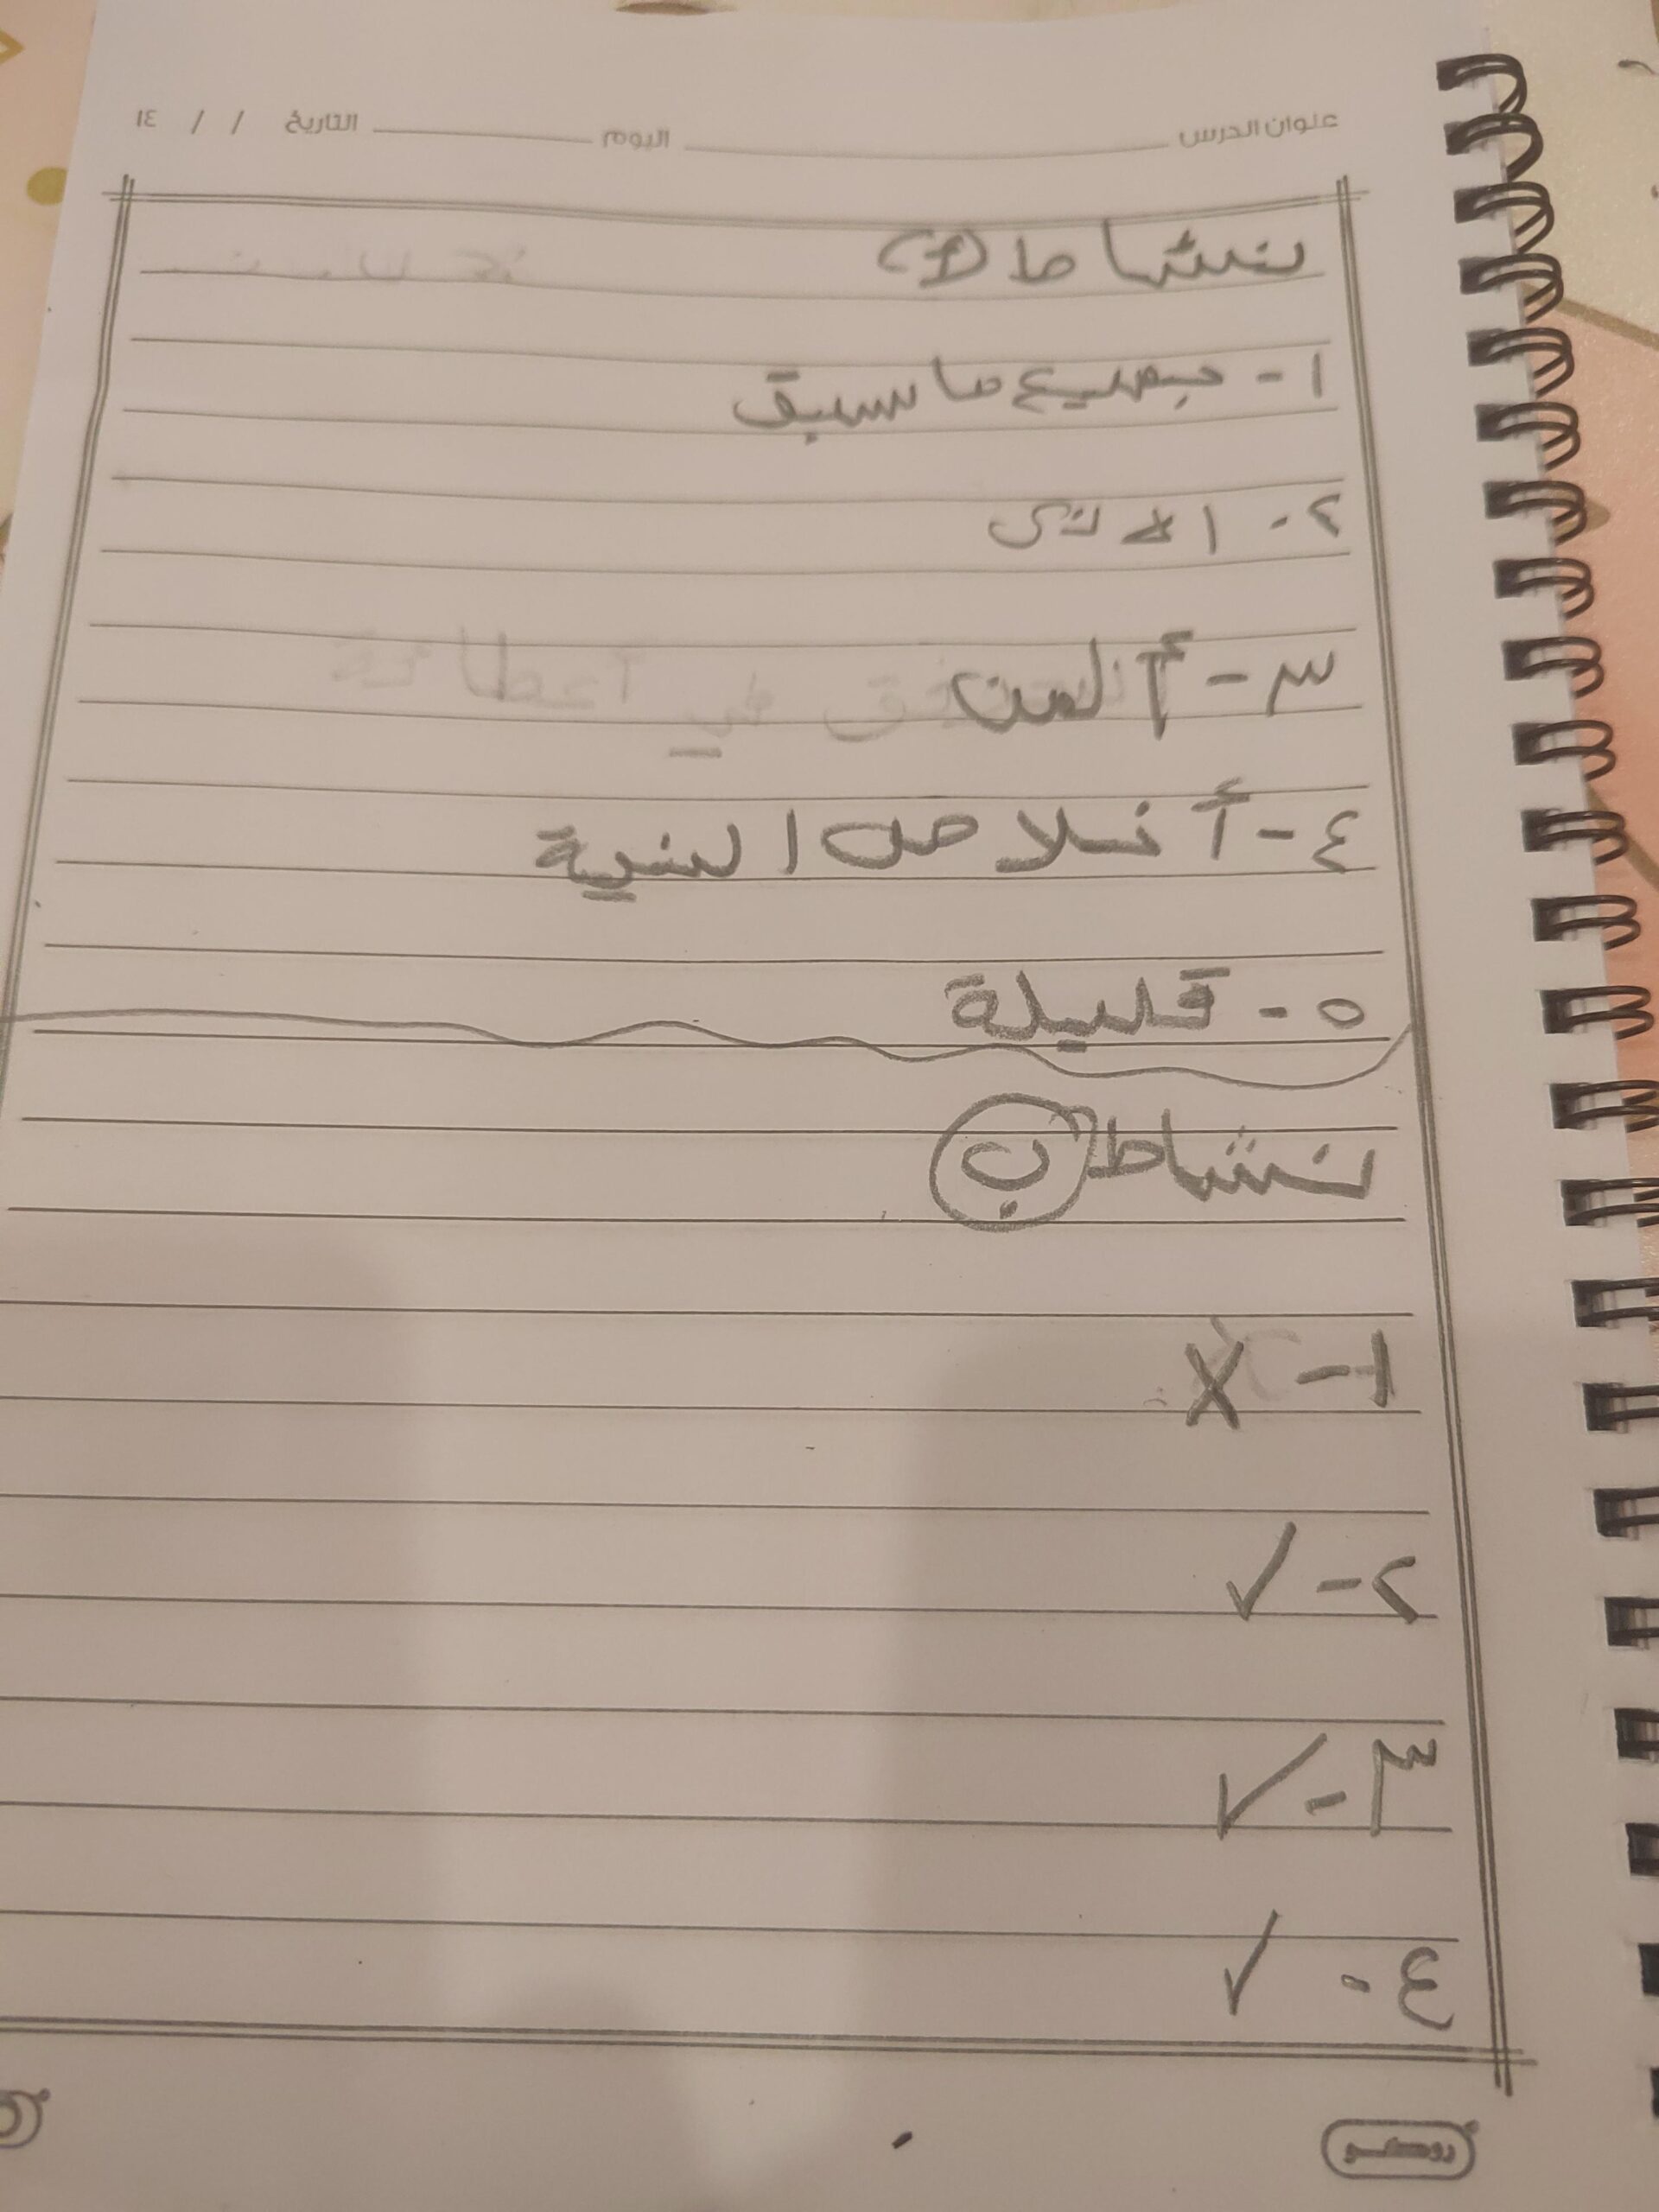 عنوان الدرس اليوم التاريخ / / ١٤
نشاط (أ)
١- جميع ما سبق
٢- الأذى
٣- ألعن
٤- أخلاص النية
٥- قليلة
نشاط ب
١- X
٢- ✓
٣- ✓
٤- ✓